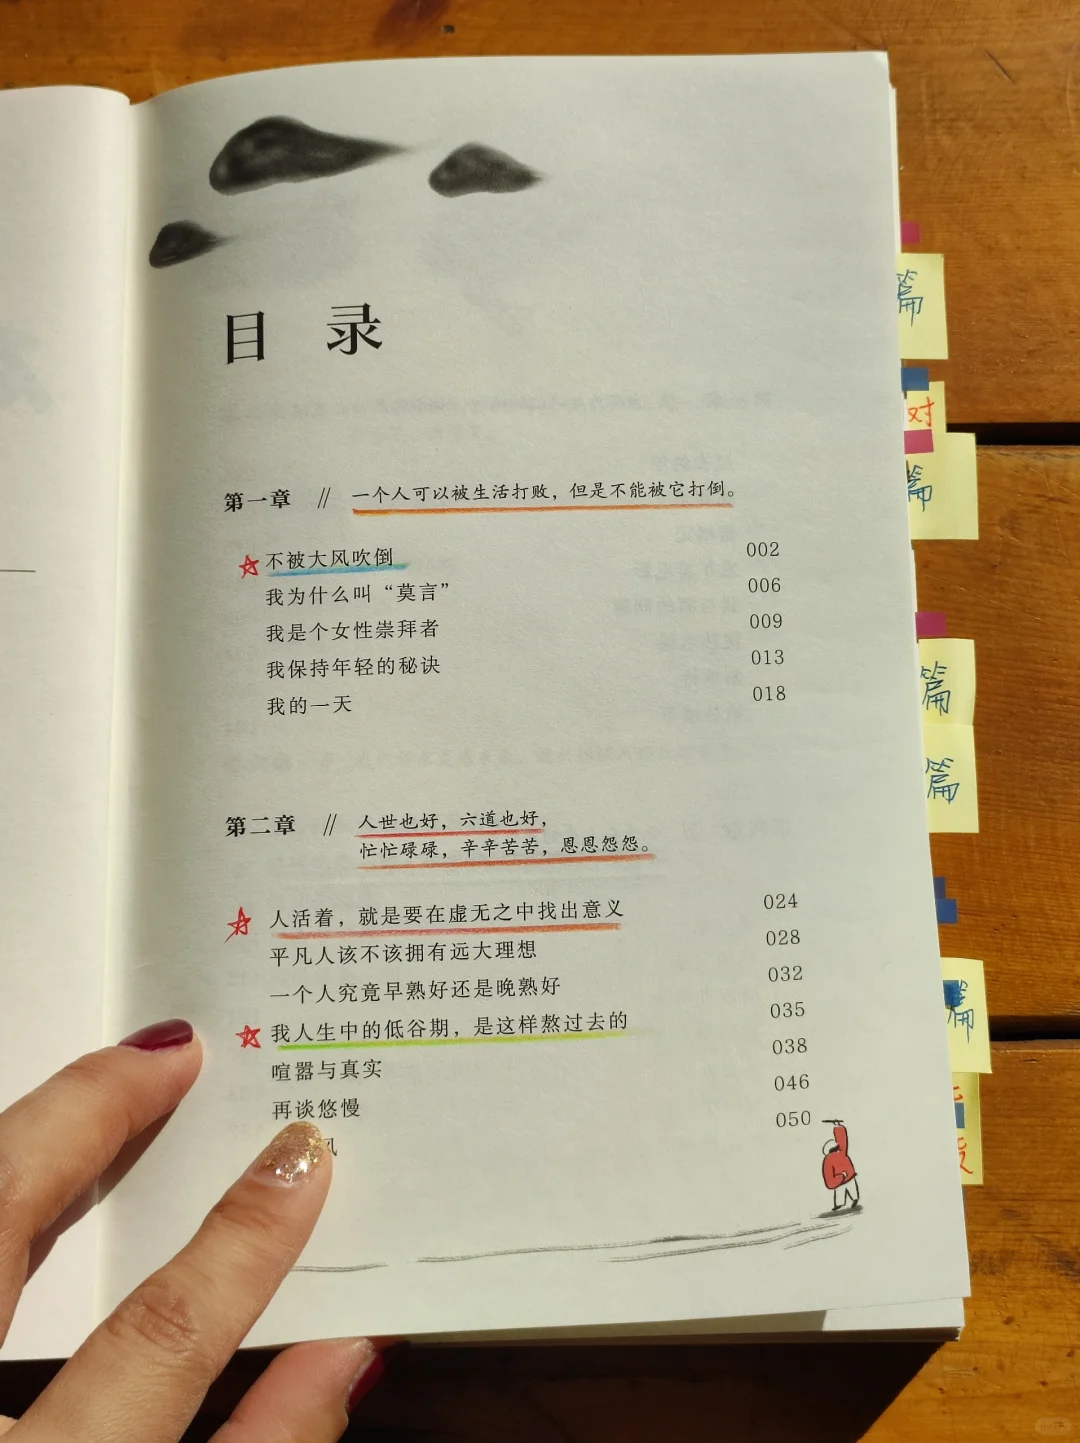 目 录
第一章 // 一个人可以被生活打败，但是不能被它打倒。
不被大风吹倒 002
我为什么叫“莫言” 006
我是个女性崇拜者 009
我保持年轻的秘诀 013
我的一天 018
第二章 // 人世也好，六道也好，
忙忙碌碌，辛辛苦苦，恩恩怨怨。
人活着，就是要在虚无之中找出意义 024
平凡人该不该拥有远大理想 028
一个人究竟早熟好还是晚熟好 032
我人生中的低谷期，是这样熬过去的 035
喧嚣与真实 038
再谈悠慢 046
风 050
篇
对
篇
篇
篇
篇